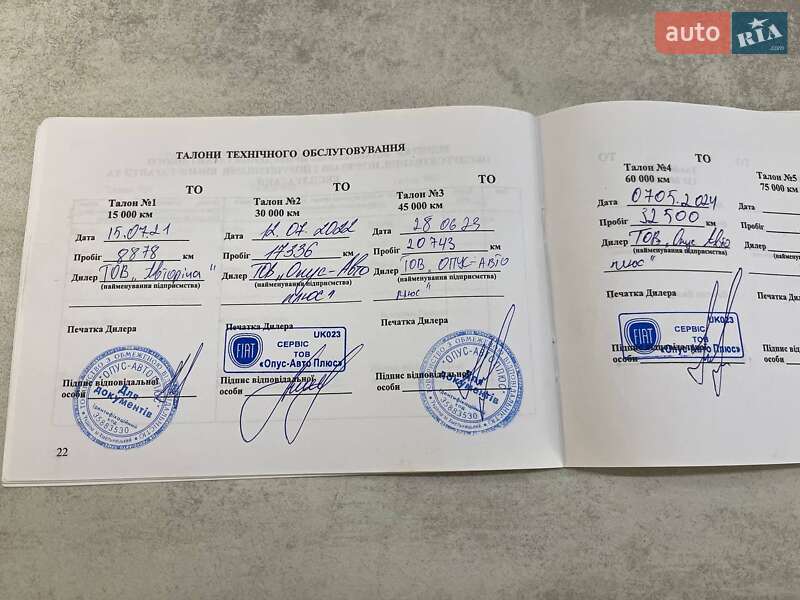 auto RIA.com
ТАЛОНИ ТЕХНІЧНОГО ОБСЛУГОВУВАННЯ
ТО
Талон №1
15 000 км
Дата 15.07.21
Пробіг 8878 км
Дилер ТОВ „
(найменування підприємства)
Печатка Дилера
Підпис відповідальної
особи
ОПУС-АВТО
Для
документів
Ідентифікаційний
35883530
ТО
Талон №2
30 000 км
Дата 12.07 2022
Пробіг 17336 км
Дилер ТОВ „Опус-Авто
(найменування підприємства)
плюс"
Печатка Дилера
FIAT
UK023
СЕРВІС
ТОВ
«Опус-Авто Плюс»
Підпис відповідальної
особи
ТО
Талон №3
45 000 км
Дата 28 06.23
Пробіг 20743 км
Дилер ТОВ „ОПУС-АВТО
(найменування підприємства)
плюс"
Печатка Дилера
Підпис відповідальної
особи
ОПУС-АВТО ПЛЮС
Для
документів
Ідентифікаційний
35883530
22
ТО
Талон №4
60 000 км
Дата 0705.2024
Пробіг 32500 км
Дилер ТОВ „Опус Авто
(найменування підприємства)
плюс"
Печатка Дилера
FIAT
UK023
СЕРВІС
ТОВ
«Опус-Авто Плюс»
Підпис відповідальної
особи
Талон №5
75 000 км
Дата
Пробіг
Дилер